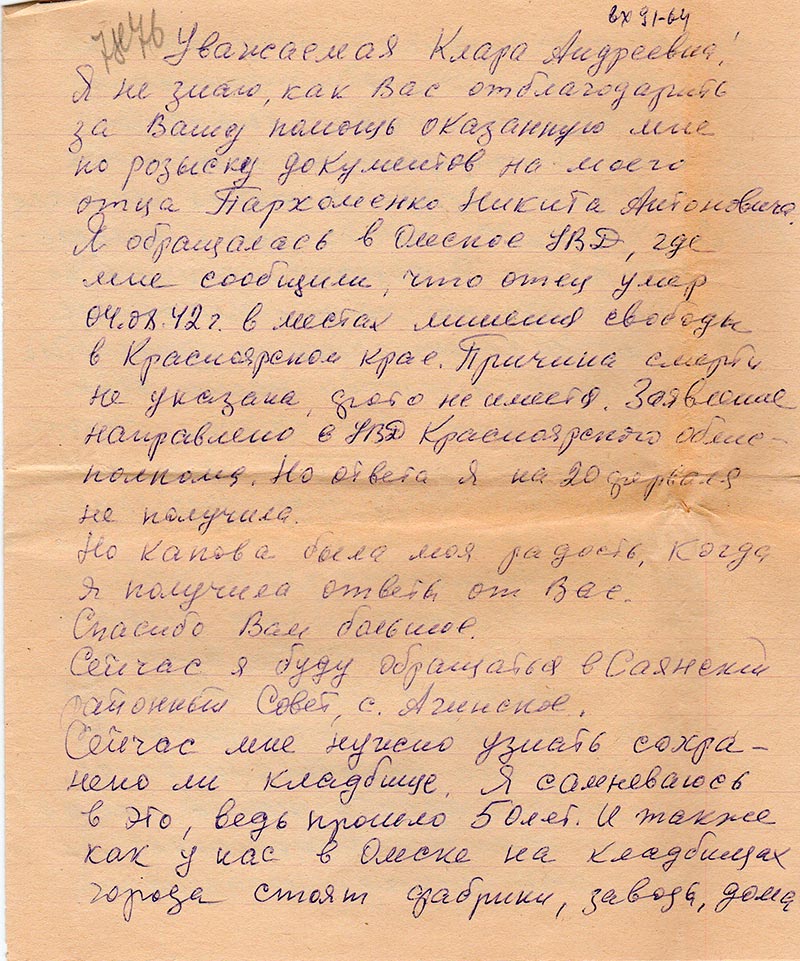 вх 91-64
7476
Уважаемая Клара Андреевна!
Я не знаю, как Вас отблагодарить
за Вашу помощь оказанную мне
по розыску документов на моего
отца Пархоменко Никита Антоновича.
Я обращалась в Омское УВД, где
мне сообщили, что отец умер
04.08.42 г. в местах лишения свободы
в Красноярском крае. Причина смерти
не указана, фото не имеется. Заявление
направлено в УВД Красноярского облис-
полкома. Но ответа я на 20 февраля
не получила.
Но какова была моя радость, когда
я получила ответы от Вас.
Спасибо Вам большое.
Сейчас я буду обращаться в Саянский
районный Совет, с. Агинское.
Сейчас мне нужно узнать сохра-
нено ли кладбище. Я самневаюсь
в это, ведь прошло 50 лет. И также
как у нас в Омске на кладбищах
города стоят фабрики, заводы, дома